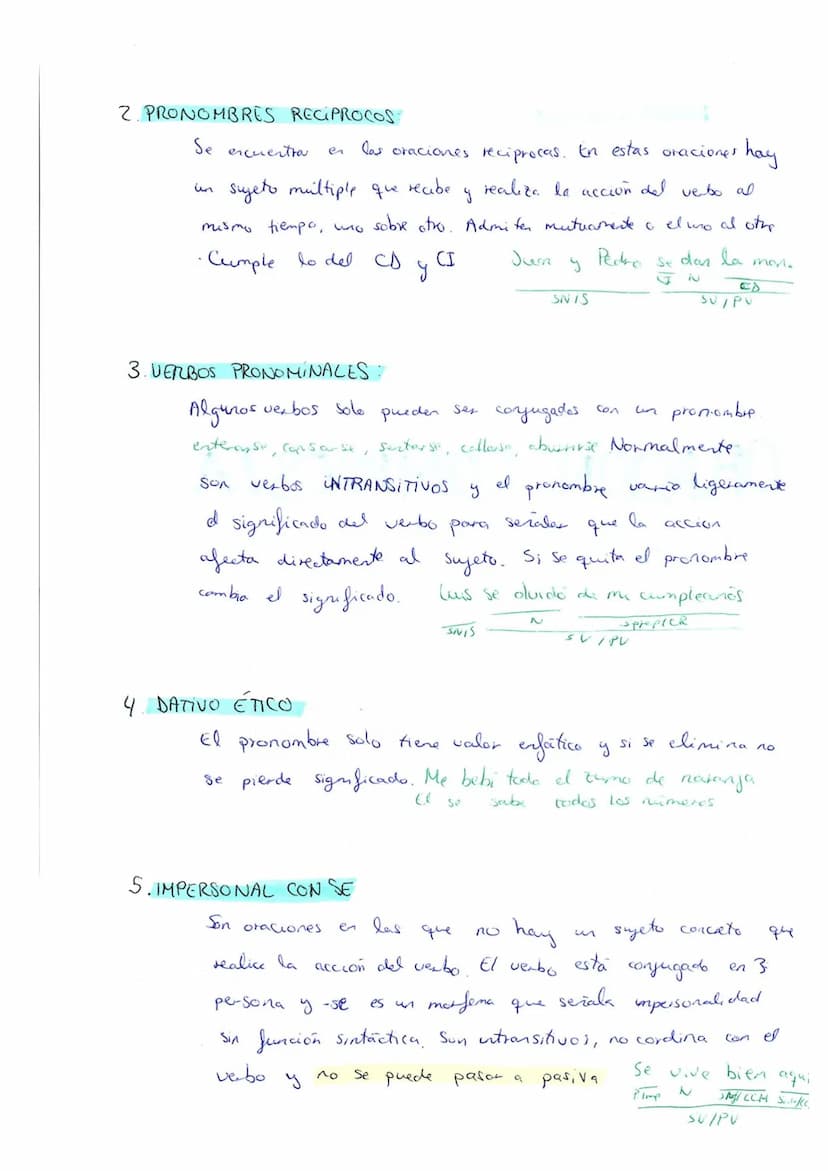 2. PRONOMBRES RECÍPROCOS:
Se encuentra en las oraciones recíprocas. En estas oraciones hay
un sujeto múltiple que recibe y realiza la acción del verbo al
mismo tiempo, uno sobre otro. Admiten mutuamente o el uno al otro
· Cumple lo del CD y CI
Juan y Pedro se dan la mano.
CI N CD
SN/S SV/PV
3. VERBOS PRONOMINALES:
Algunos verbos solo pueden ser conjugados con un pronombre
enterarse, cansarse, sentarse, callarse, aburrirse Normalmente
son verbos INTRANSITIVOS y el pronombre varia ligeramente
el significado del verbo para señalar que la accion
afecta directamente al sujeto. Si se quita el pronombre
cambia el significado. Luis se olvidó de mi cumpleaños
N Sprep/CR
SN/S SV/PV
4. DATIVO ÉTICO
El pronombre solo tiene valor enfático y si se elimina no
se pierde significado. Me bebí todo el zumo de naranja
El se sabe todos los números
5. IMPERSONAL CON SE
Son oraciones en las que no hay un sujeto concreto que
realice la acción del verbo. El verbo está conjugado en 3
persona y -se es un morfema que señala impersonalidad
sin función sintáctica. Son intransitivos, no cordina con el
verbo y no se puede pasar a pasiva
Se vive bien aquí
P.Imp N /CCM
SV/PV